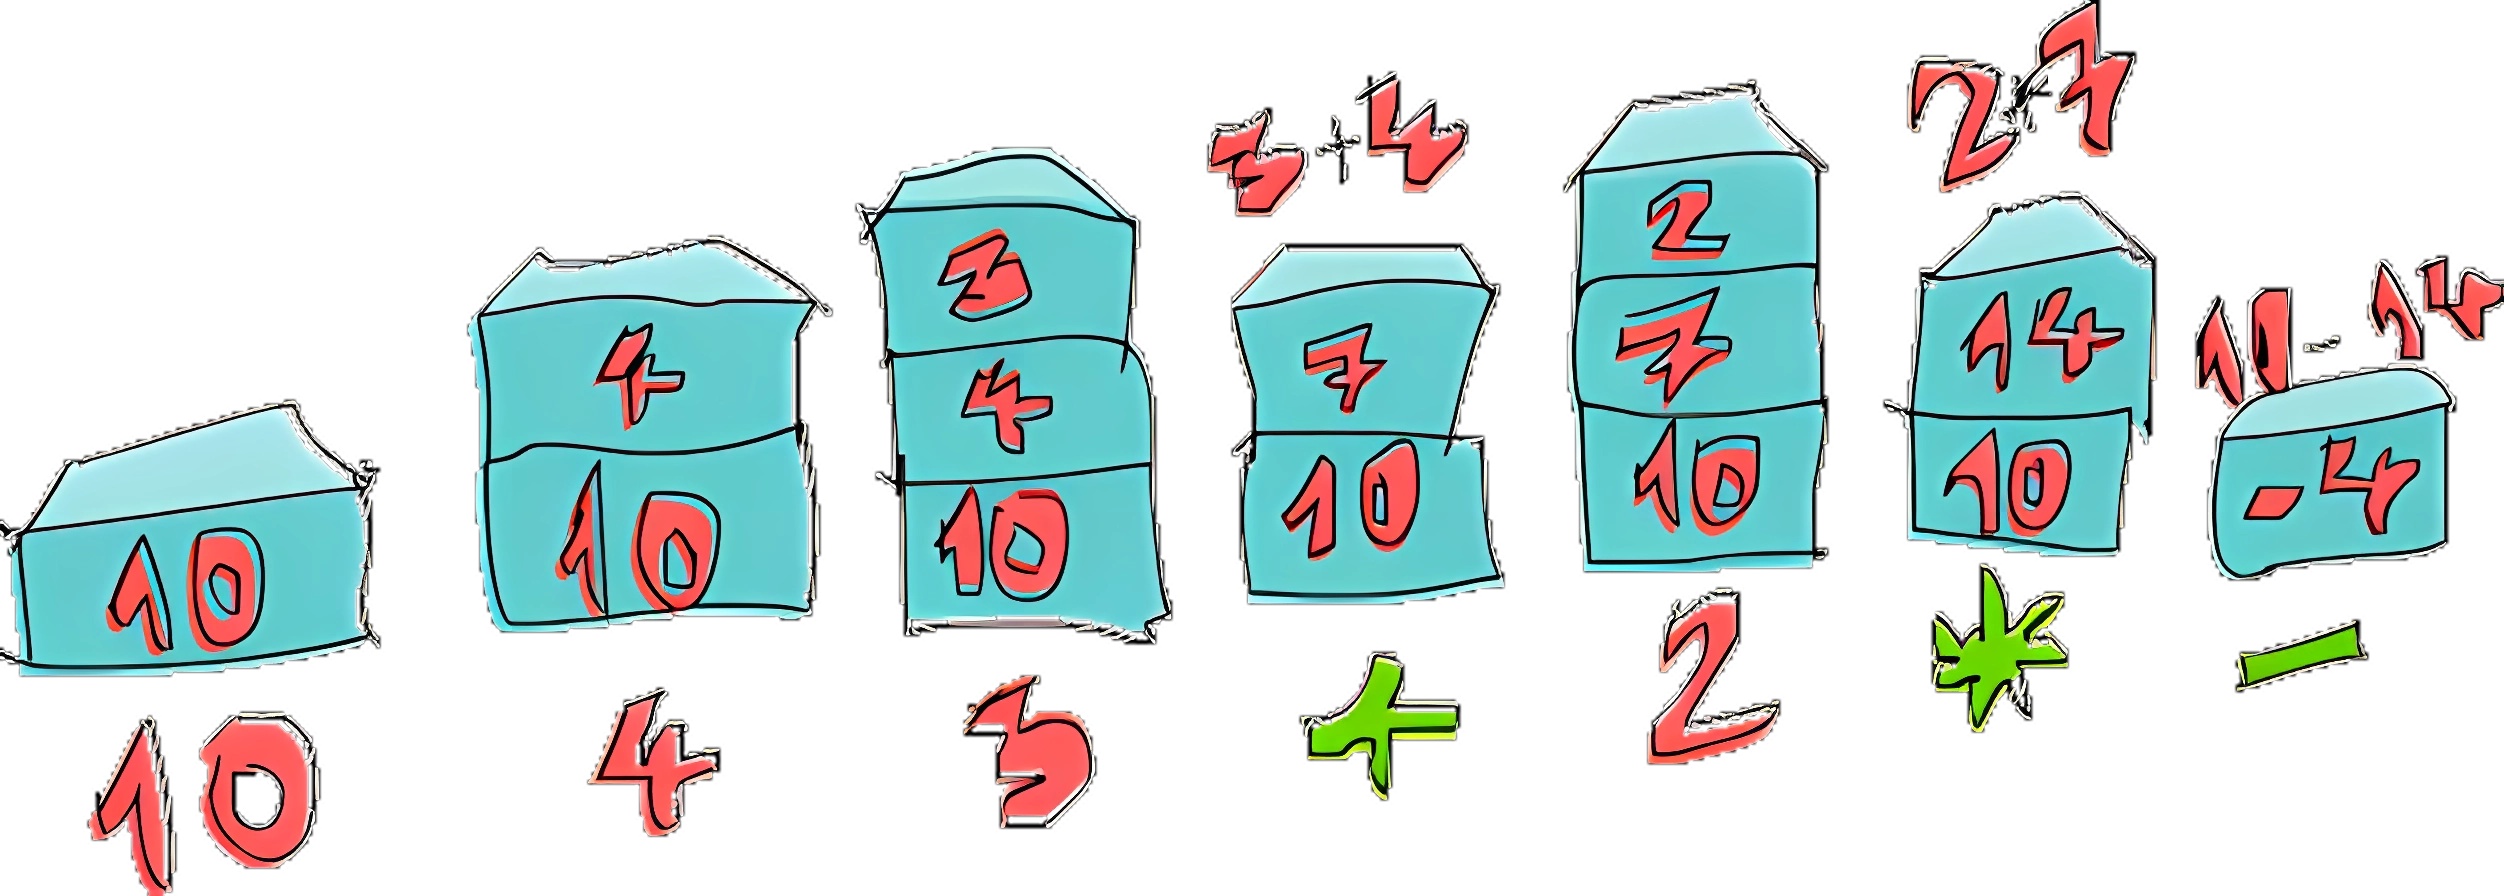 10
10
4
10
4
3
4
10
3
3+4
7
10
+
2
7
10
2
2*7
14
10
*
10-14
-4
-